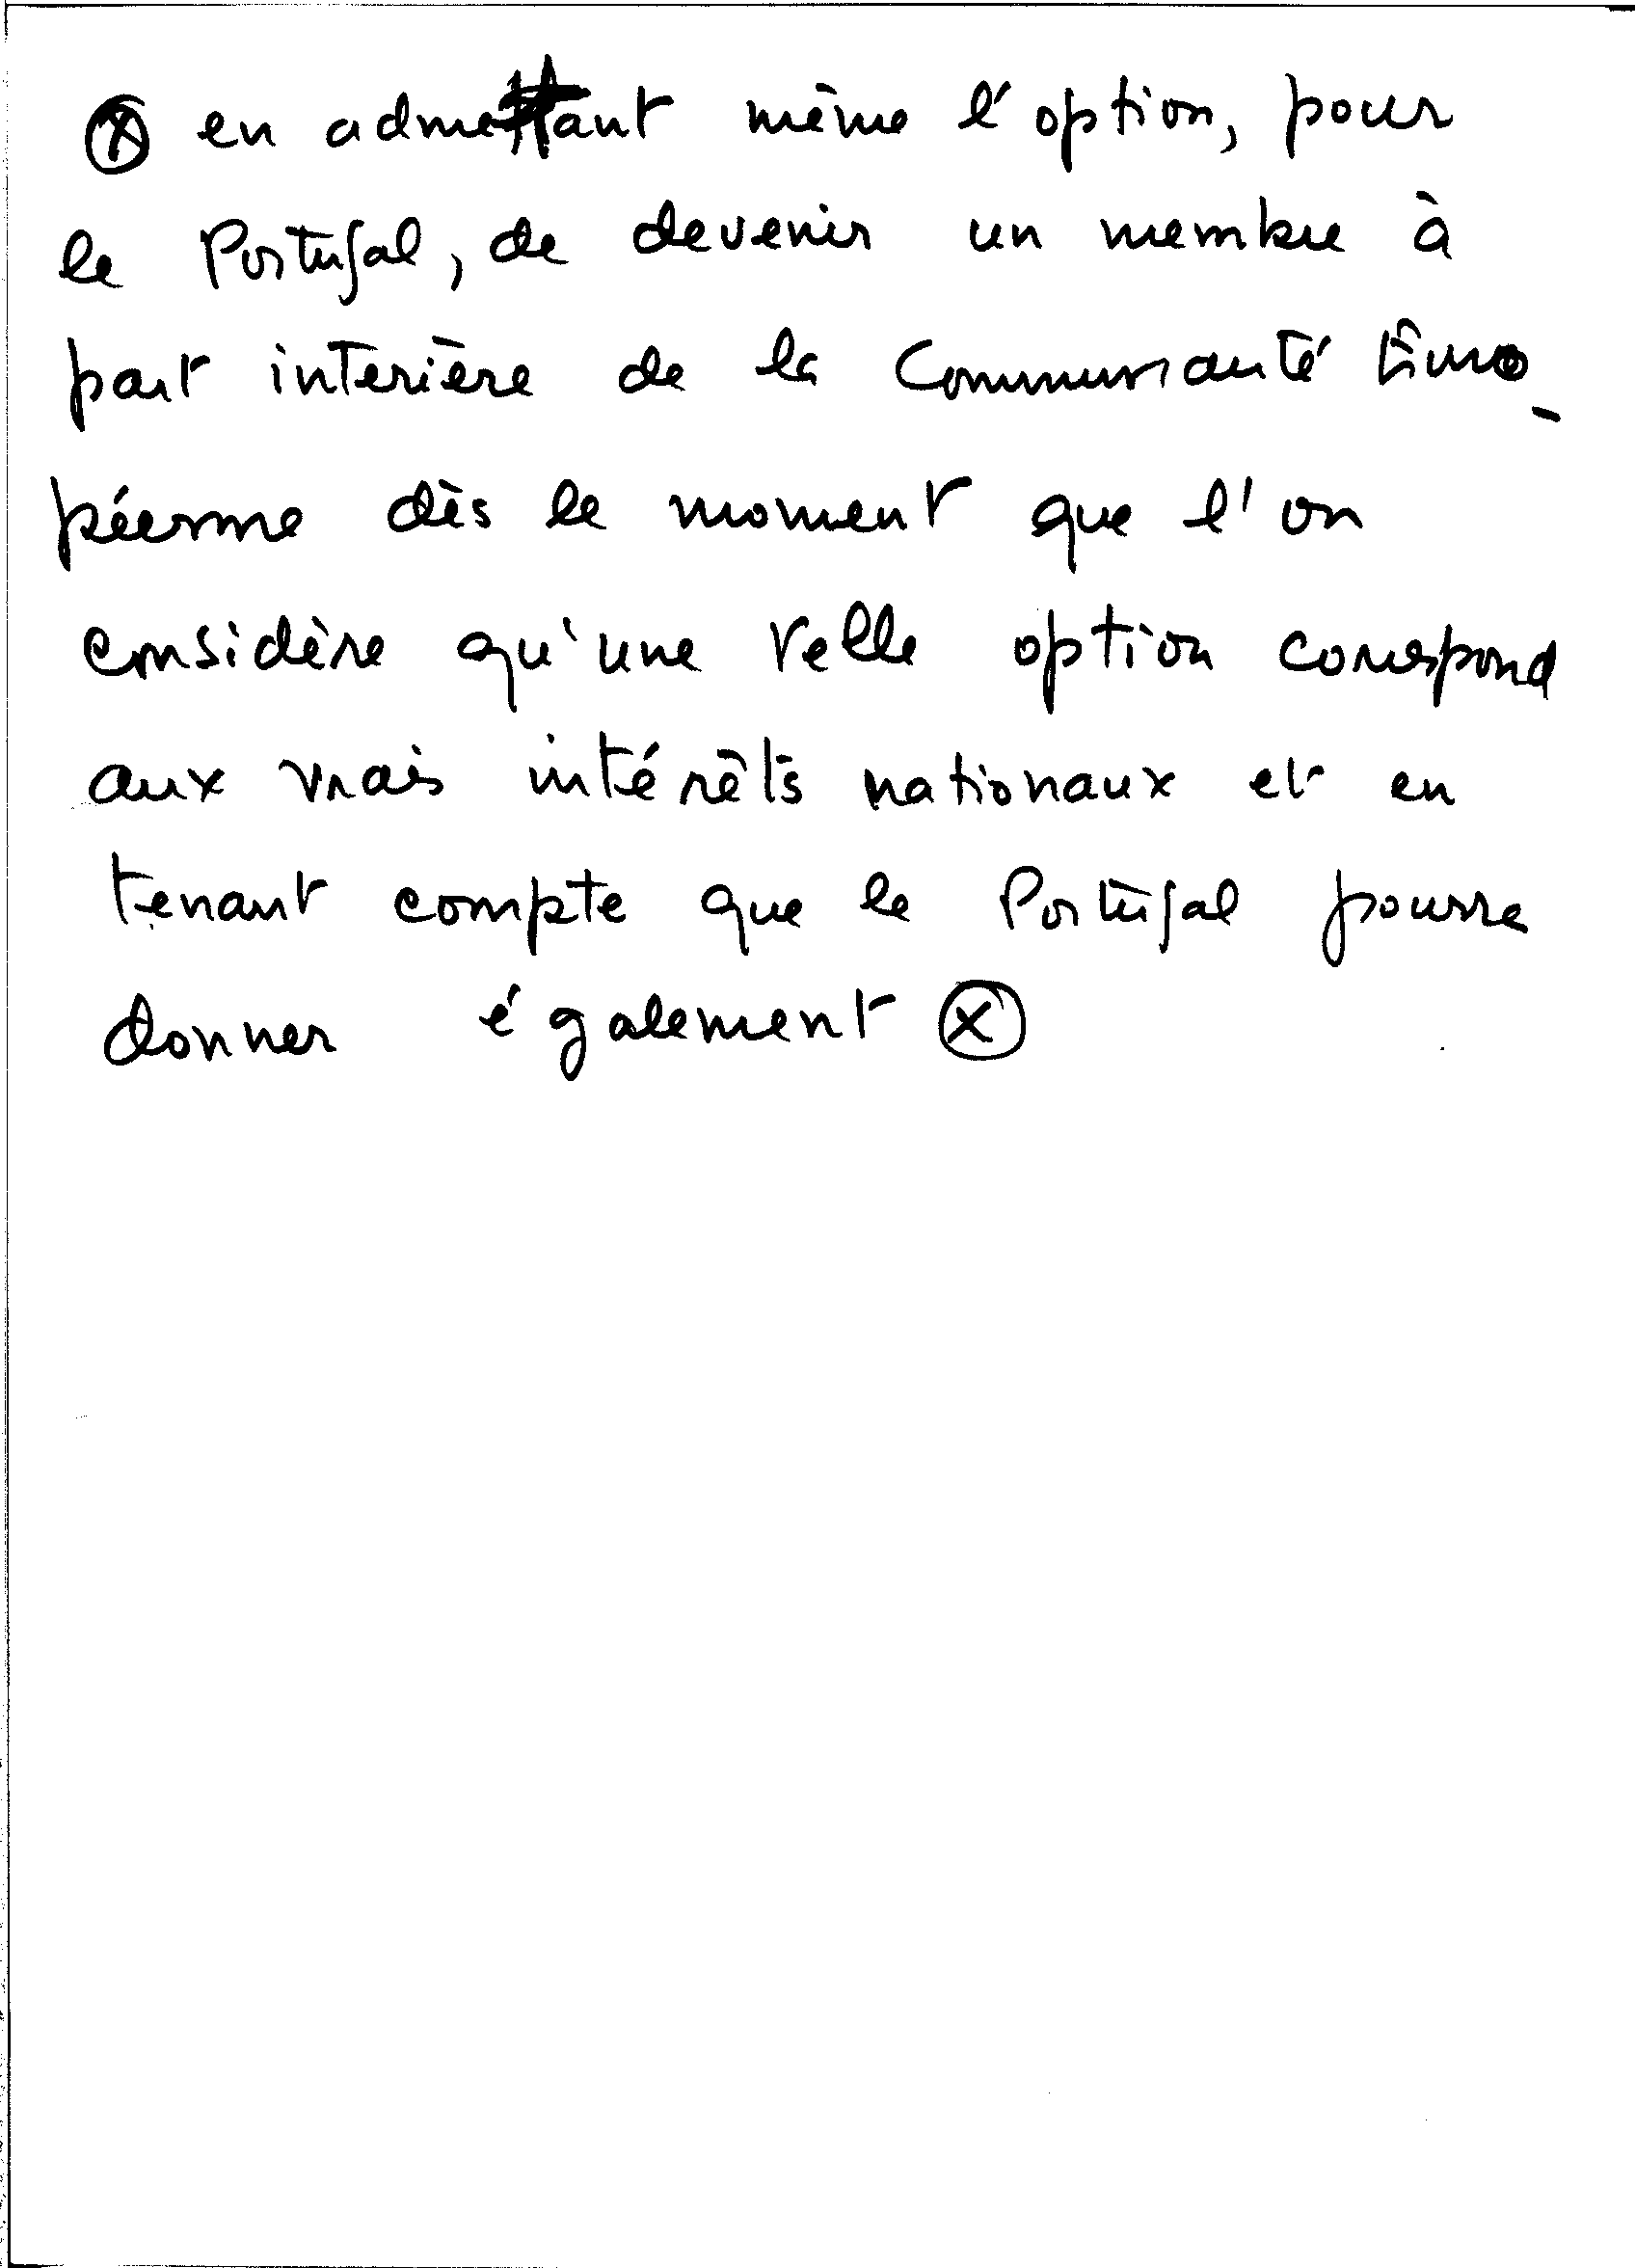 ⓧ en admettant même l'option, pour
le Portugal, de devenir un membre à
part interière de la Communauté Euro-
péenne dès le moment que l'on
considère qu'une telle option correspond
aux vrais intérêts nationaux et en
tenant compte que le Portugal pourra
donner également ⓧ